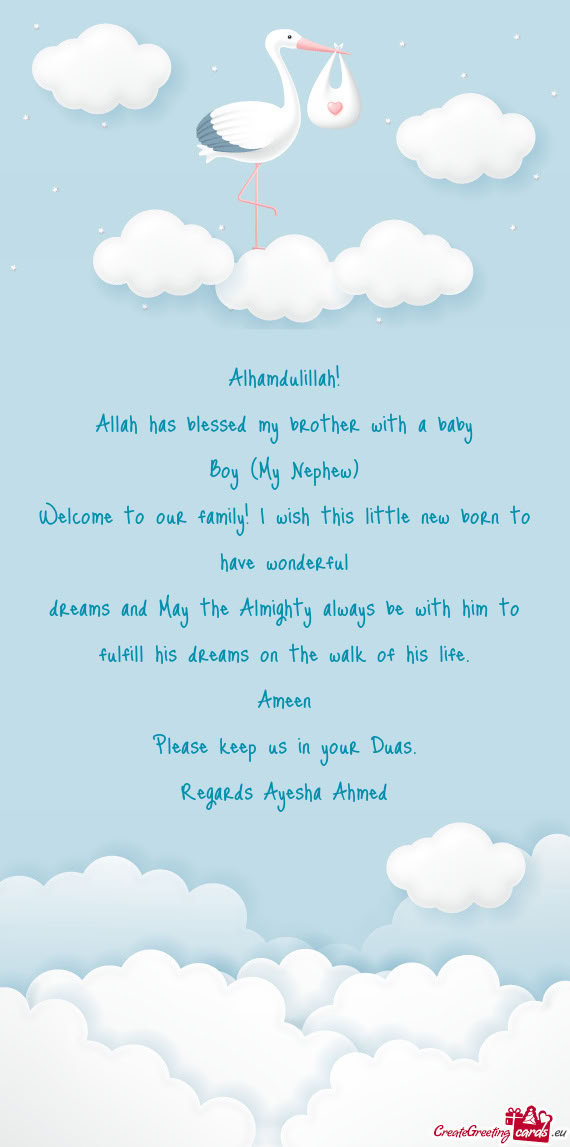 Alhamdulillah!
Allah has blessed my brother with a baby
Boy (My Nephew)
Welcome to our family! I wish this little new born to
have wonderful
dreams and May the Almighty always be with him to
fulfill his dreams on the walk of his life.
Ameen
Please keep us in your Duas.
Regards Ayesha Ahmed
CreateGreetingcards.eu